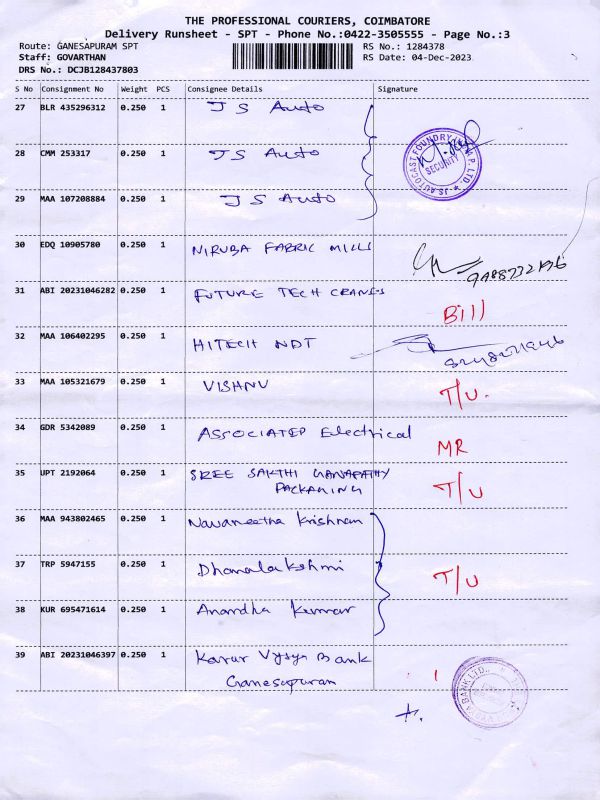 THE PROFESSIONAL COURIERS, COIMBATORE
Delivery Runsheet - SPT - Phone No.:0422-3505555 - Page No.:3
Route: GANESAPURAM SPT RS No.: 1284378
Staff: GOVARTHAN RS Date: 04-Dec-2023
DRS No.: DCJB128437803
S No Consignment No Weight PCS Consignee Details Signature
27 BLR 435296312 0.250 1 J S Auto
28 CMM 253317 0.250 1 J S Auto
JS AUTOCAST FOUNDRY P. LTD
SECURITY
29 MAA 107208884 0.250 1 J S Auto
30 EDQ 10905780 0.250 1 NIRUBA FABRIC MILLS
31 ABI 20231046282 0.250 1 FUTURE TECH CRANES Bill
32 MAA 106402295 0.250 1 HITECH NDT
33 MAA 105321679 0.250 1 VISHNU T/U.
34 GDR 5342089 0.250 1 ASSOCIATED Electrical MR
35 UPT 2192064 0.250 1 SREE SAKTHI GANAPATHY
PACKAGING T/U
36 MAA 943802465 0.250 1 Navaneetha Krishnan
37 TRP 5947155 0.250 1 Dhanalakshmi T/U
38 KUR 695471614 0.250 1 Anandha Kumar
39 ABI 20231046397 0.250 1 Karur Vysya Bank
Ganesapuram
BANK LTD.